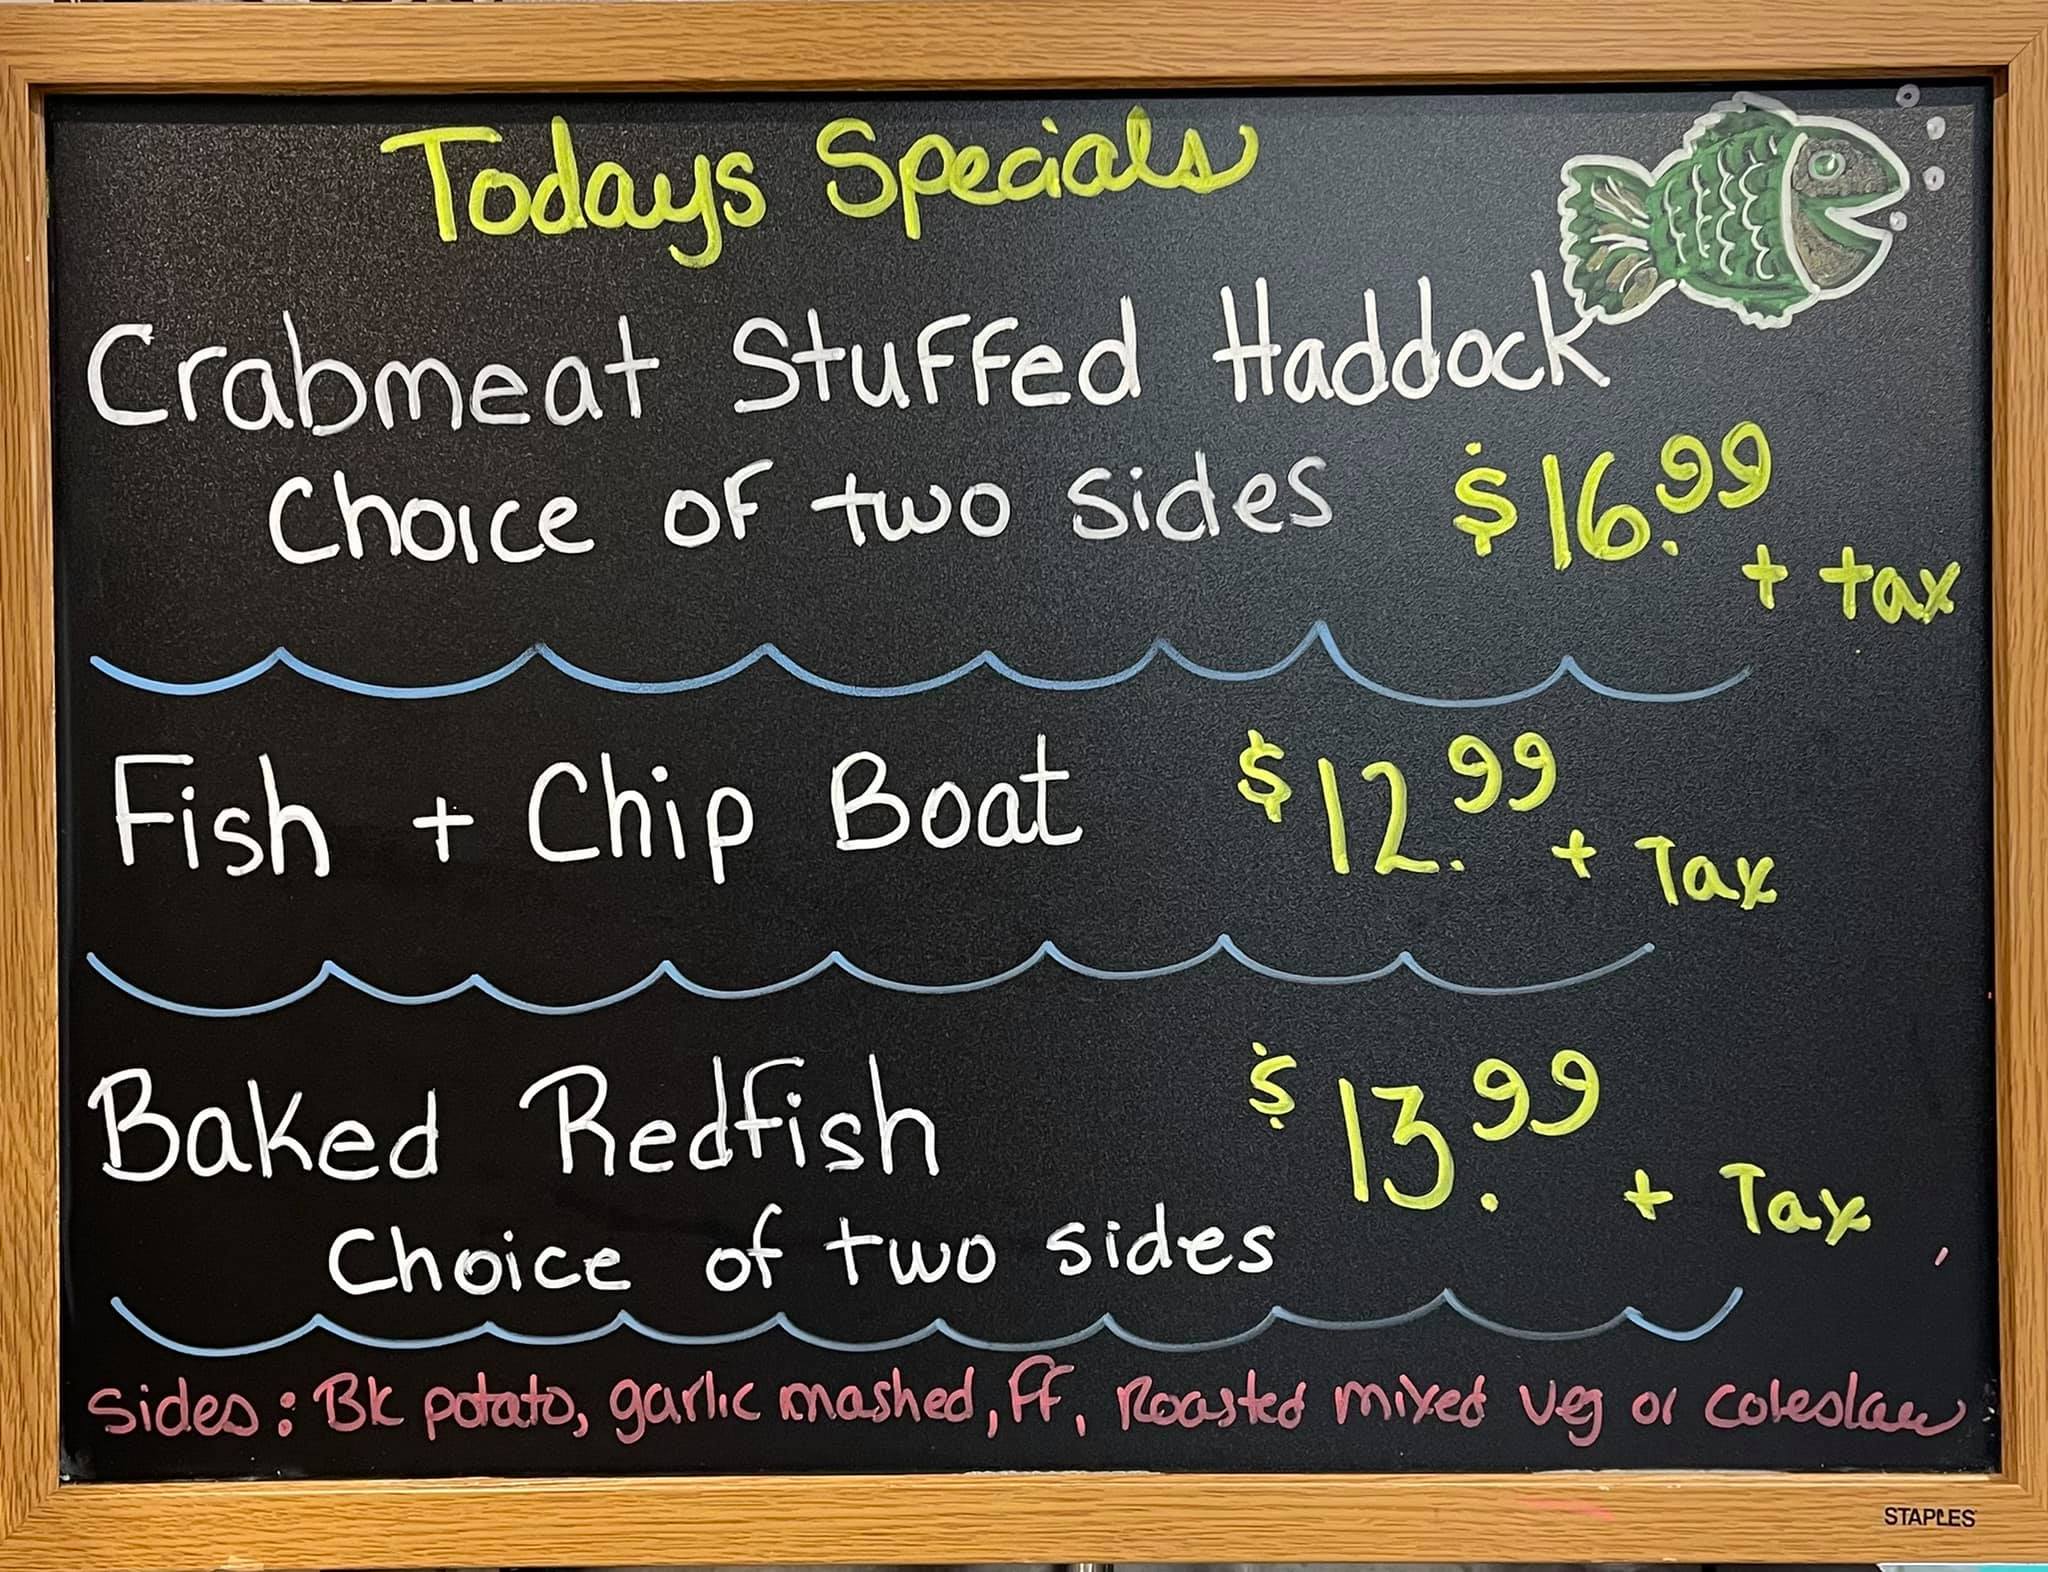 Todays Specials
Crabmeat Stuffed Haddock
Choice of two sides $16.99
+ tax
Fish + Chip Boat $12.99
+ Tax
Baked Redfish $13.99
+ Tax
Choice of two sides
Sides: Bk potato, garlic mashed, FF, Roasted mixed veg or coleslaw
STAPLES